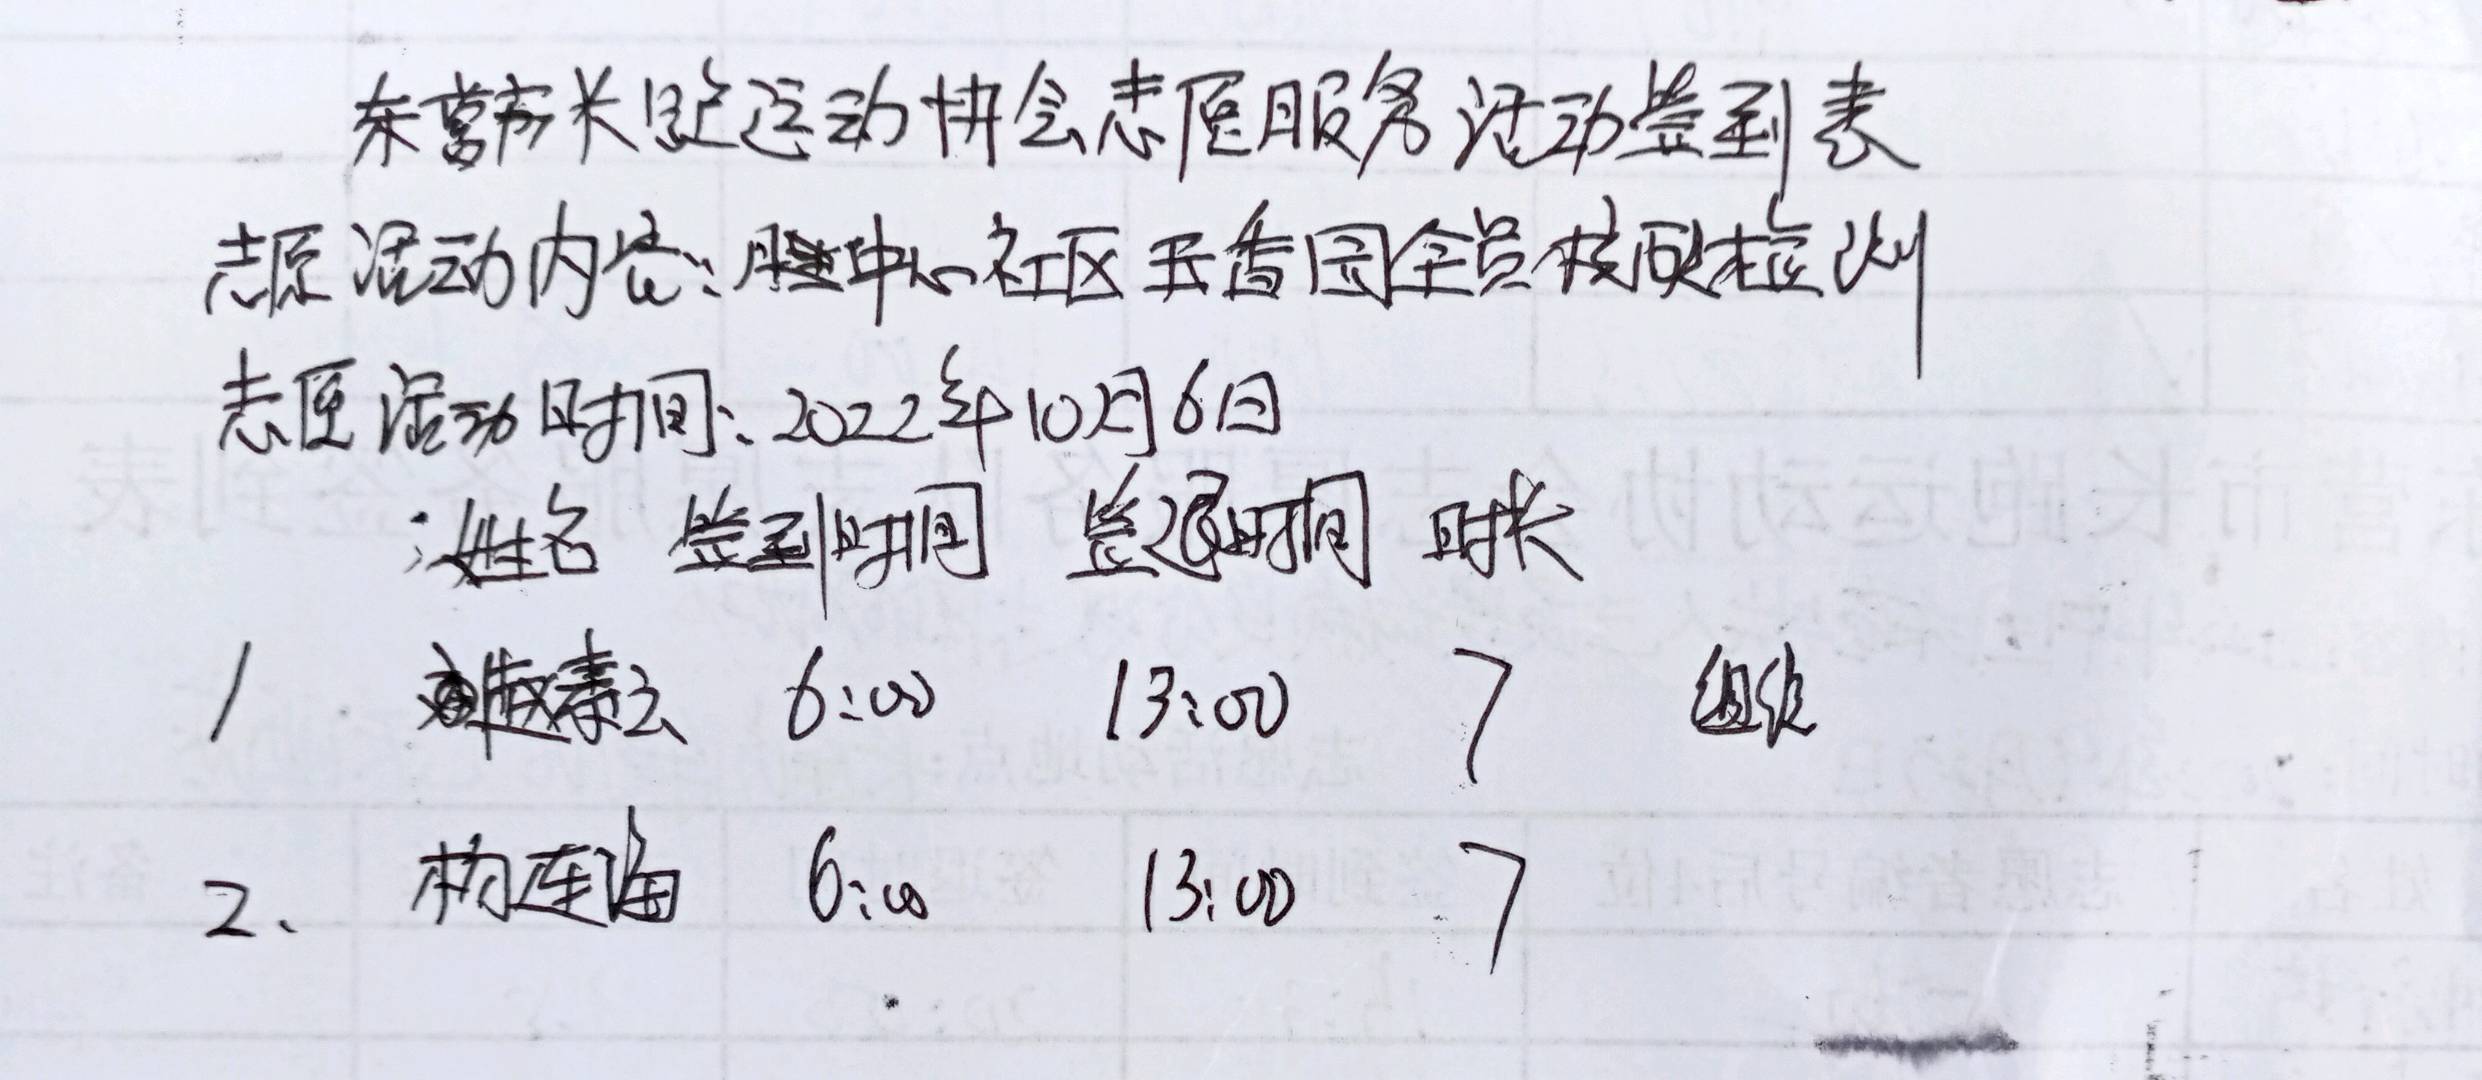 东营市长跑运动协会志愿服务活动签到表
志愿活动内容：胜中心社区玉香园全员核酸检测
志愿活动时间：2022年10月6日
姓名 签到时间 签退时间 时长
1 素云 6:00 13:00 7 组织
2、 杨连海 6:00 13:00 7